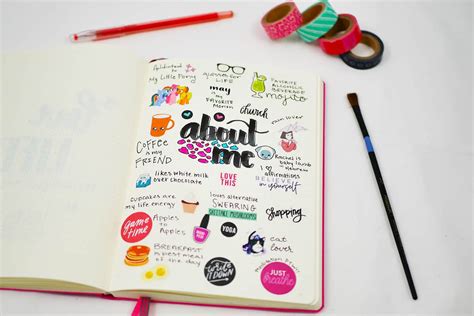 Addicted to
My Little Pony
glasses for
LIFE
FAVORITE
ALCOHOLIC
BEVERAGE
mojito
may
is my
FAVORITE
MONTH
church
COFFEE
is my
FRIEND
about
me
Rachel is
baby lamb
in Hebrew
likes white milk
over chocolate
LOVE
THIS
I ♡
affirmations
BELIEVE
in yourself
cupcakes are
my life energy
loves alternative
SWEARING
SHITAKE MUSHROOMS
shopping
game
time
Apples
to
Apples
YOGA
cat
lover
BREAKFAST
is best meal
of the day
write
it DOWN
JUST
breathe